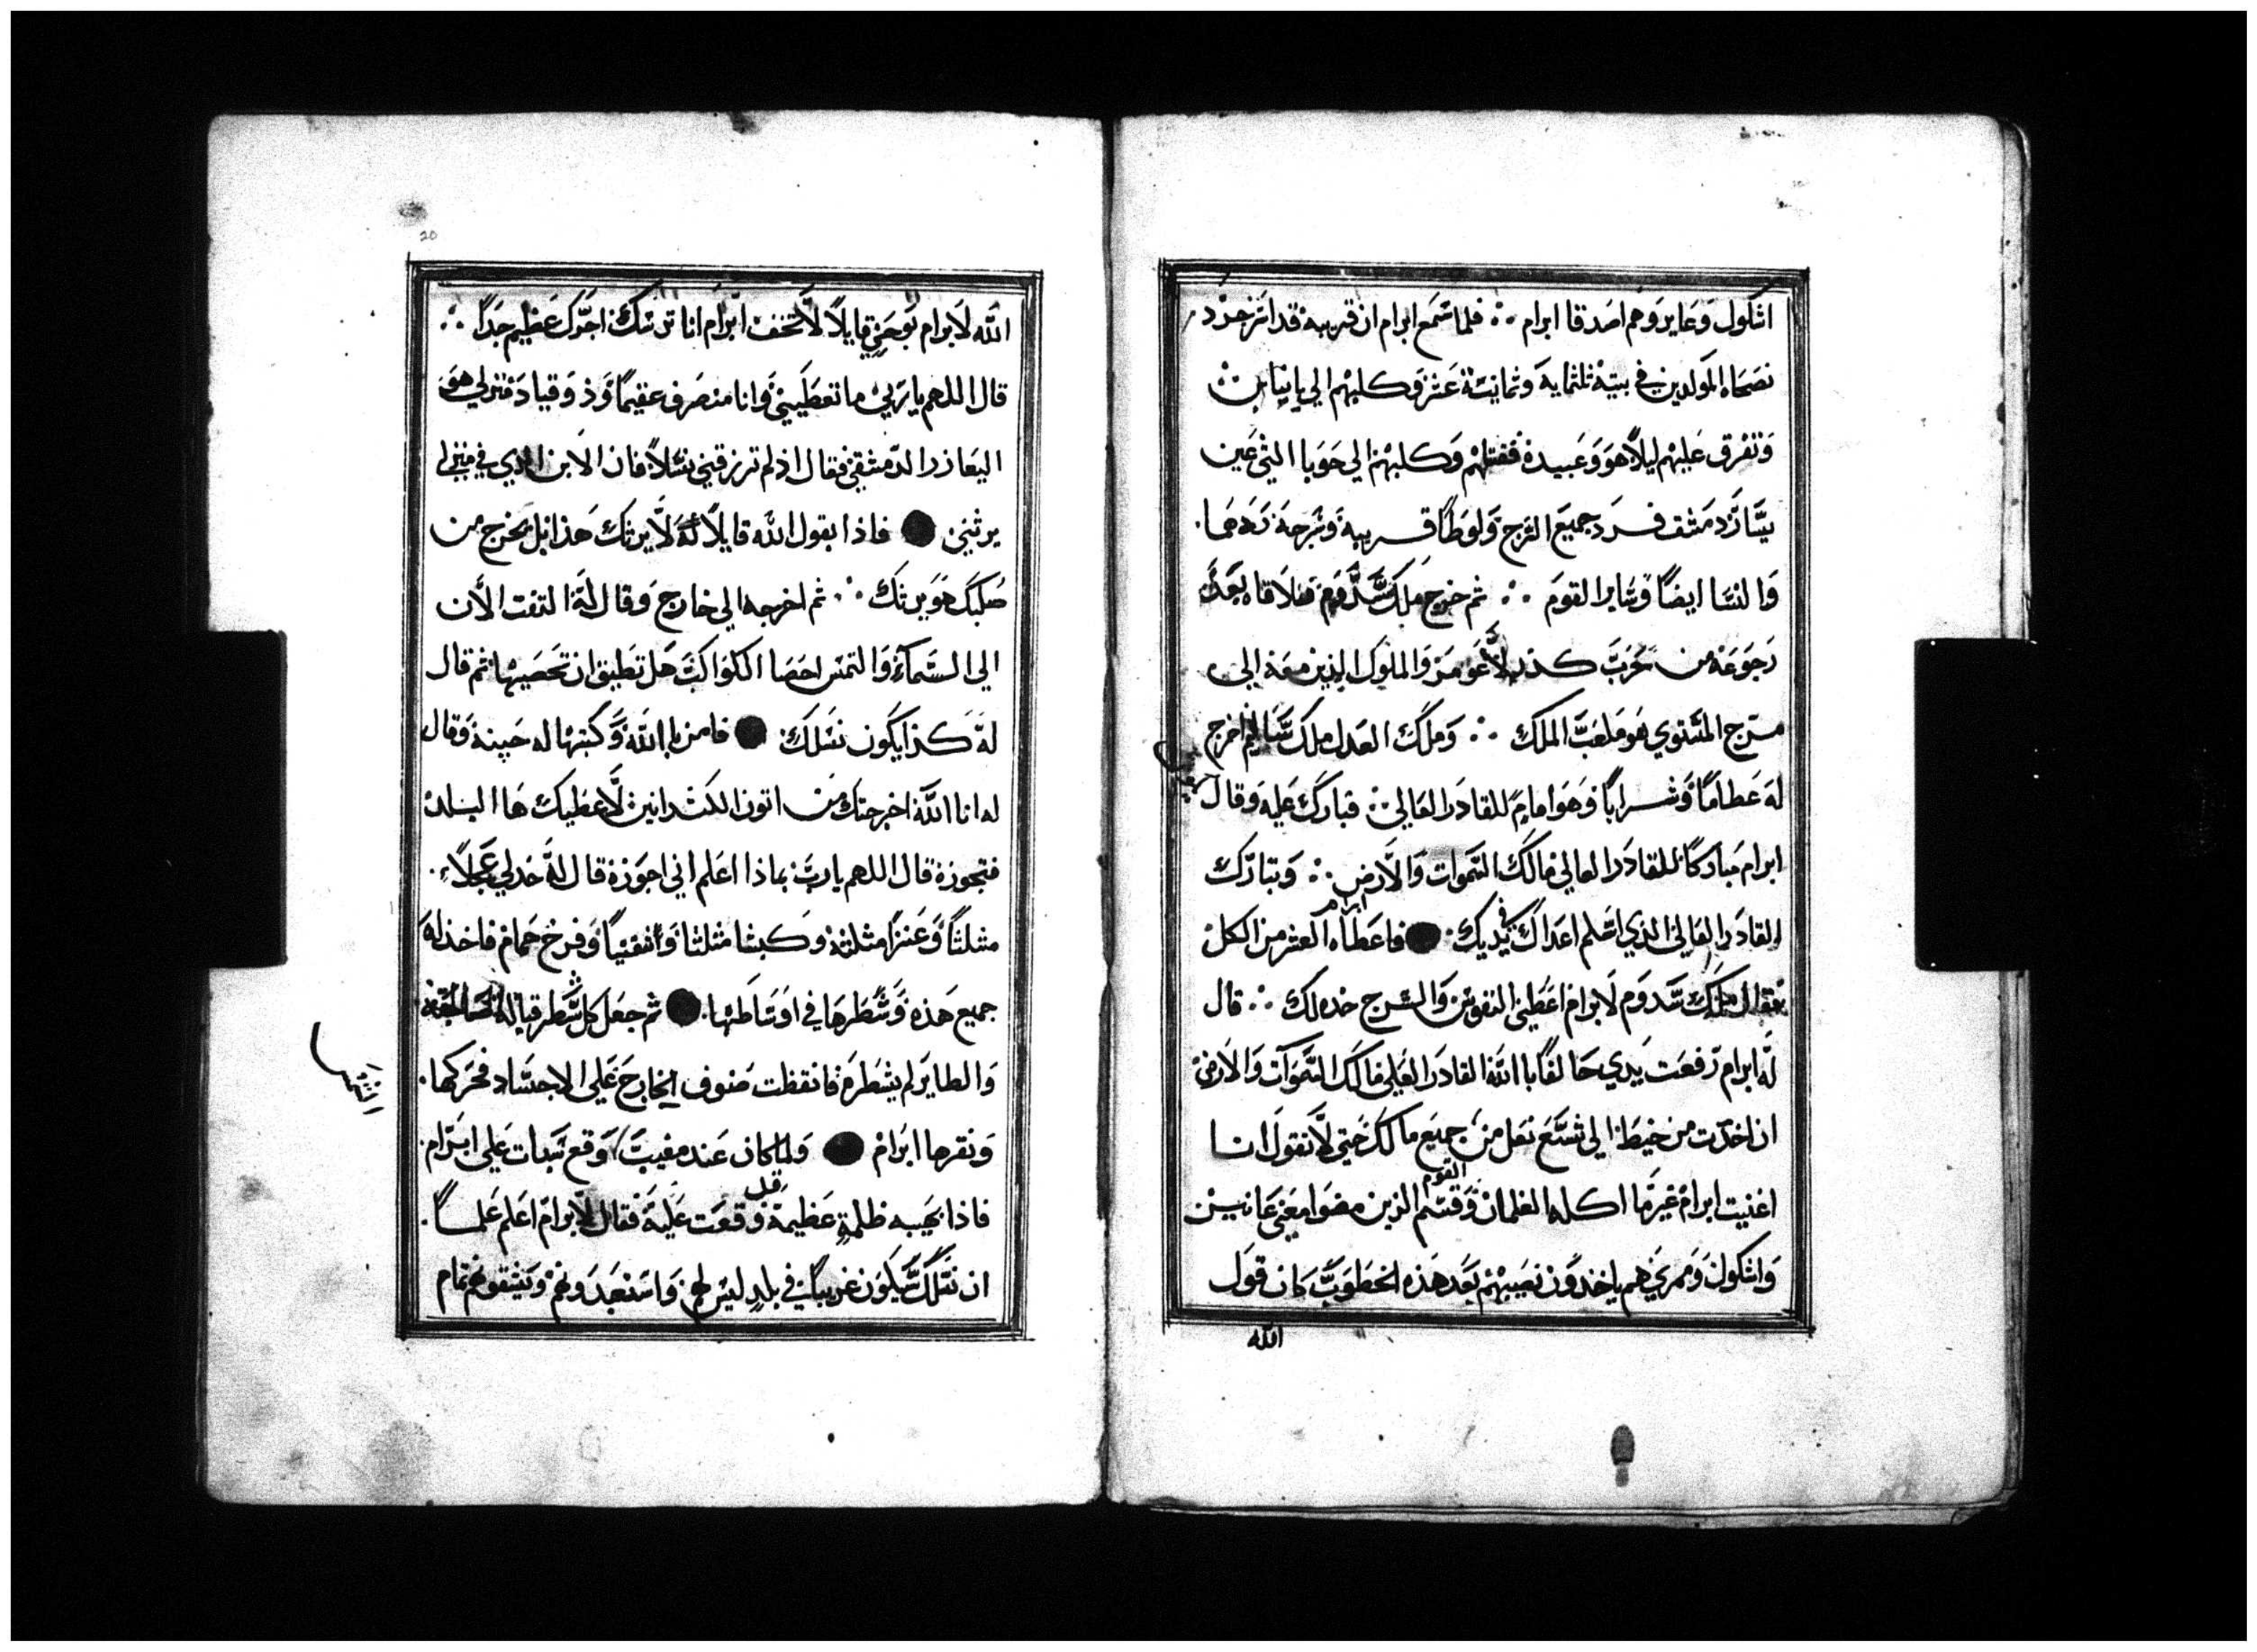 اشكول وعاير وهم اصدقا ابرام ∴ فلما سمع ابرام ان قريبه قد
نصحاه المولدين في بيته ثلثماية وثمانية عشر وكلبهم الي بانياس
وتفرق عليهم ليلاً هو وعبيده فقتلهم وكلبهم الي حوبا التي عين
دمشق فرد جميع السرج ولوطاً قريبه وسرجه ردهما
والنسا ايضاً وساير القوم ∴ ثم خرج ملك سدوم فتلاقاه بعد
رجوعه من حرب كدرلاعومر والملوك الذين معه الي
مرج المستوي هو ملعب الملك ∴ وملك العدل ملك ساليم اخرج
له طعاماً وشراباً وهو امام للقادر العالي ∴ فبارك عليه وقال
ابرام مباركاً للقادر العالي مالك السموات والارض ∴ وتبارك
القادر العالي الذي اسلم اعداك في يديك فاعطاه ابرام العشر من الكل
فقال ملك سدوم لابرام اعطيني النفوس والسرج خده لك ∴ قال
له ابرام رفعت يدي حالفاً باالله القادر العلي مالك السموات والارض
ان اخدت من خيط الي شسع نعل من جميع ما لك حتي لا تقول انا
اغنيت ابرام غير ما اكله الغلمان وقسم القوم الذين مضوا معي عانير
واشكول وممري هم ياخدون نصيبهم بعد هذه الخطوب كان قول
الله
20
الله لابرام بوحي قايلاً لا تخف ابرام انا ترسك اجرك عظيم جداً ∴
قال اللهم يا ربي ما تعطيني وانا منصرف عقيماً وذو قياد منزلي هو
اليعازر الدمشقي فقال اذ لم ترزقني نسلاً فان الابن الدي في منزلي
يرثني فاذا بقول الله قايلاً له لا يرثك هذا بل يخرج من
صلبك هو يرثك ∴ ثم اخرجه الي خارج وقال له التفت الأن
الي السماء والتمس احصا الكواكب هل تطيق ان تحصيها ثم قال
له كذا يكون نسلك فامن باالله وكتبها له حسنة وقال
له انا الله اخرجتك من اتون الكسدانين لأعطيك ها البلد
فتحوزه قال اللهم يا رب بماذا اعلم اني احوزه قال له خد لي عجلاً
مثلثاً وعنزاً مثلثة وكبشا مثلثا وشفنيناً وفرخ حمام فاخذ له
جميع هذه وشطرها في اوساطها ثم جعل كل شطر قبالة صاحبه
والطاير لم يشطره فانقظت صنوف الخارج علي الاجساد فحركها
ونقرها ابرام ولما كان عند مغيب وقع سبات علي ابرام
فاذا بهيبه ظلمة عظيمة قد وقعت عليه فقال لابرام اعلم علماً
ان نسلك سيكون غريباً في بلد ليس لهم واستعبدونهم ويشقونهم تمام